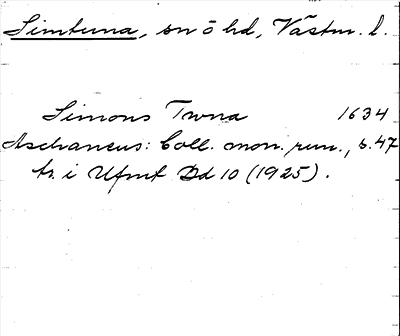 Simtuna, sn o hd, Västm. l.
Simons Twna 1634
Aschaneus: Coll. mon. run., s. 47
tr. i Ufmt Bd 10 (1925).